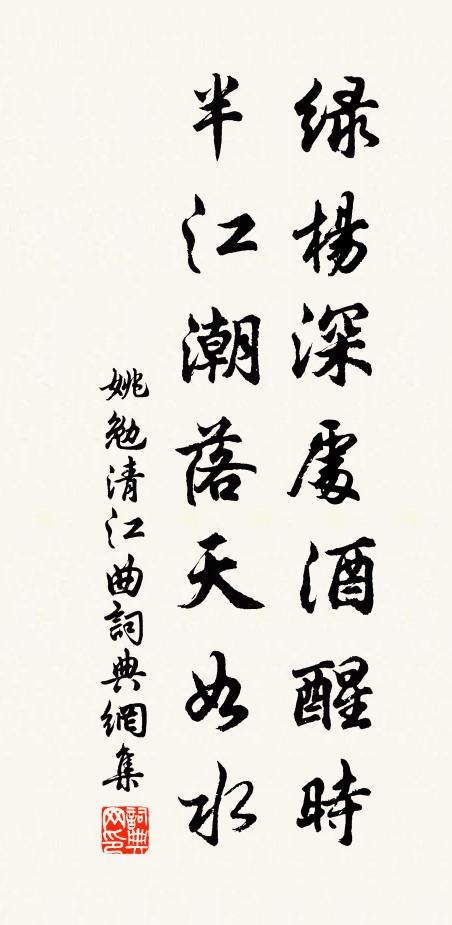 绿楊深處酒醒時
半江潮落天如水
姚勉清江曲詞典網集
詞典網印